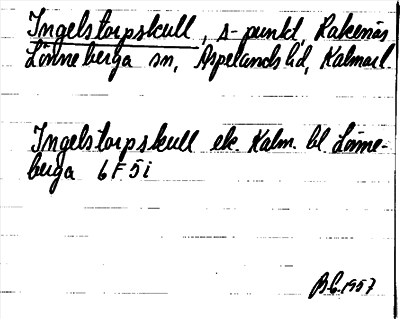 Ingelstorpskull, s-punkt, Rakenäs
Lönneberga sn, Aspelands hd, Kalmar l.
Ingelstorpskull ek. Kalm. bl. Lönne-
berga 6F5i
1957